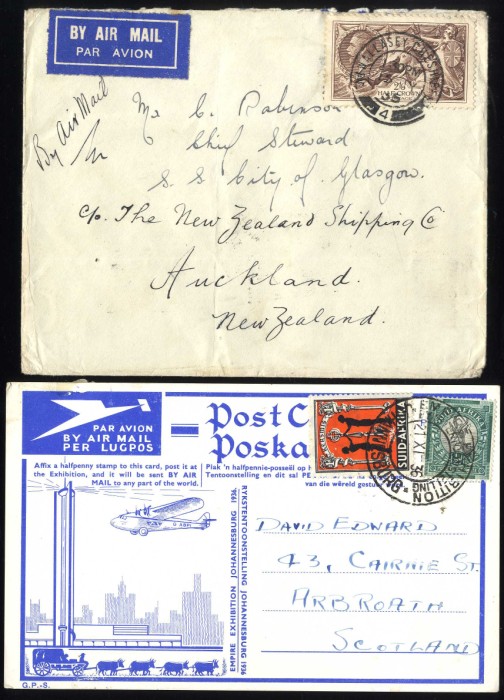 BY AIR MAIL
PAR AVION
2/6
HALF CROWN
35
By Air Mail
Mr C. Robinson
Chief Steward
S.S City of Glasgow.
c/o. The New Zealand Shipping Co
Auckland.
New Zealand.
PAR AVION
BY AIR MAIL
PER LUGPOS
Post C
Poska
SUID-AFRIKA
Affix a halfpenny stamp to this card, post it at
the Exhibition, and it will be sent BY AIR
MAIL to any part of the world.
Plak 'n halfpennie-posseël op
Tentoonstelling en dit sal PE
van die wêreld gestuur
EMPIRE EXHIBITION JOHANNESBURG 1936
RYKSTENTOONSTELLING JOHANNESBURG 1936
DAVID EDWARD
43, CAIRNIE ST.
ARBROATH
SCOTLAND
G.P.-S.